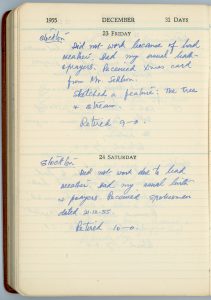 1955 DECEMBER 31 DAYS
23 FRIDAY
Stockton
Did not work because of bad
weather. Had my usual bath
prayers. Received Xmas card
from Mr.
Sketched a feature: The Tree
& Stream.
Retired 9-0.
24 SATURDAY
Stockton
Did not work due to bad
weather. Had my usual bath
& prayers. Received
dated 21-12-55.
Retired 10-0.